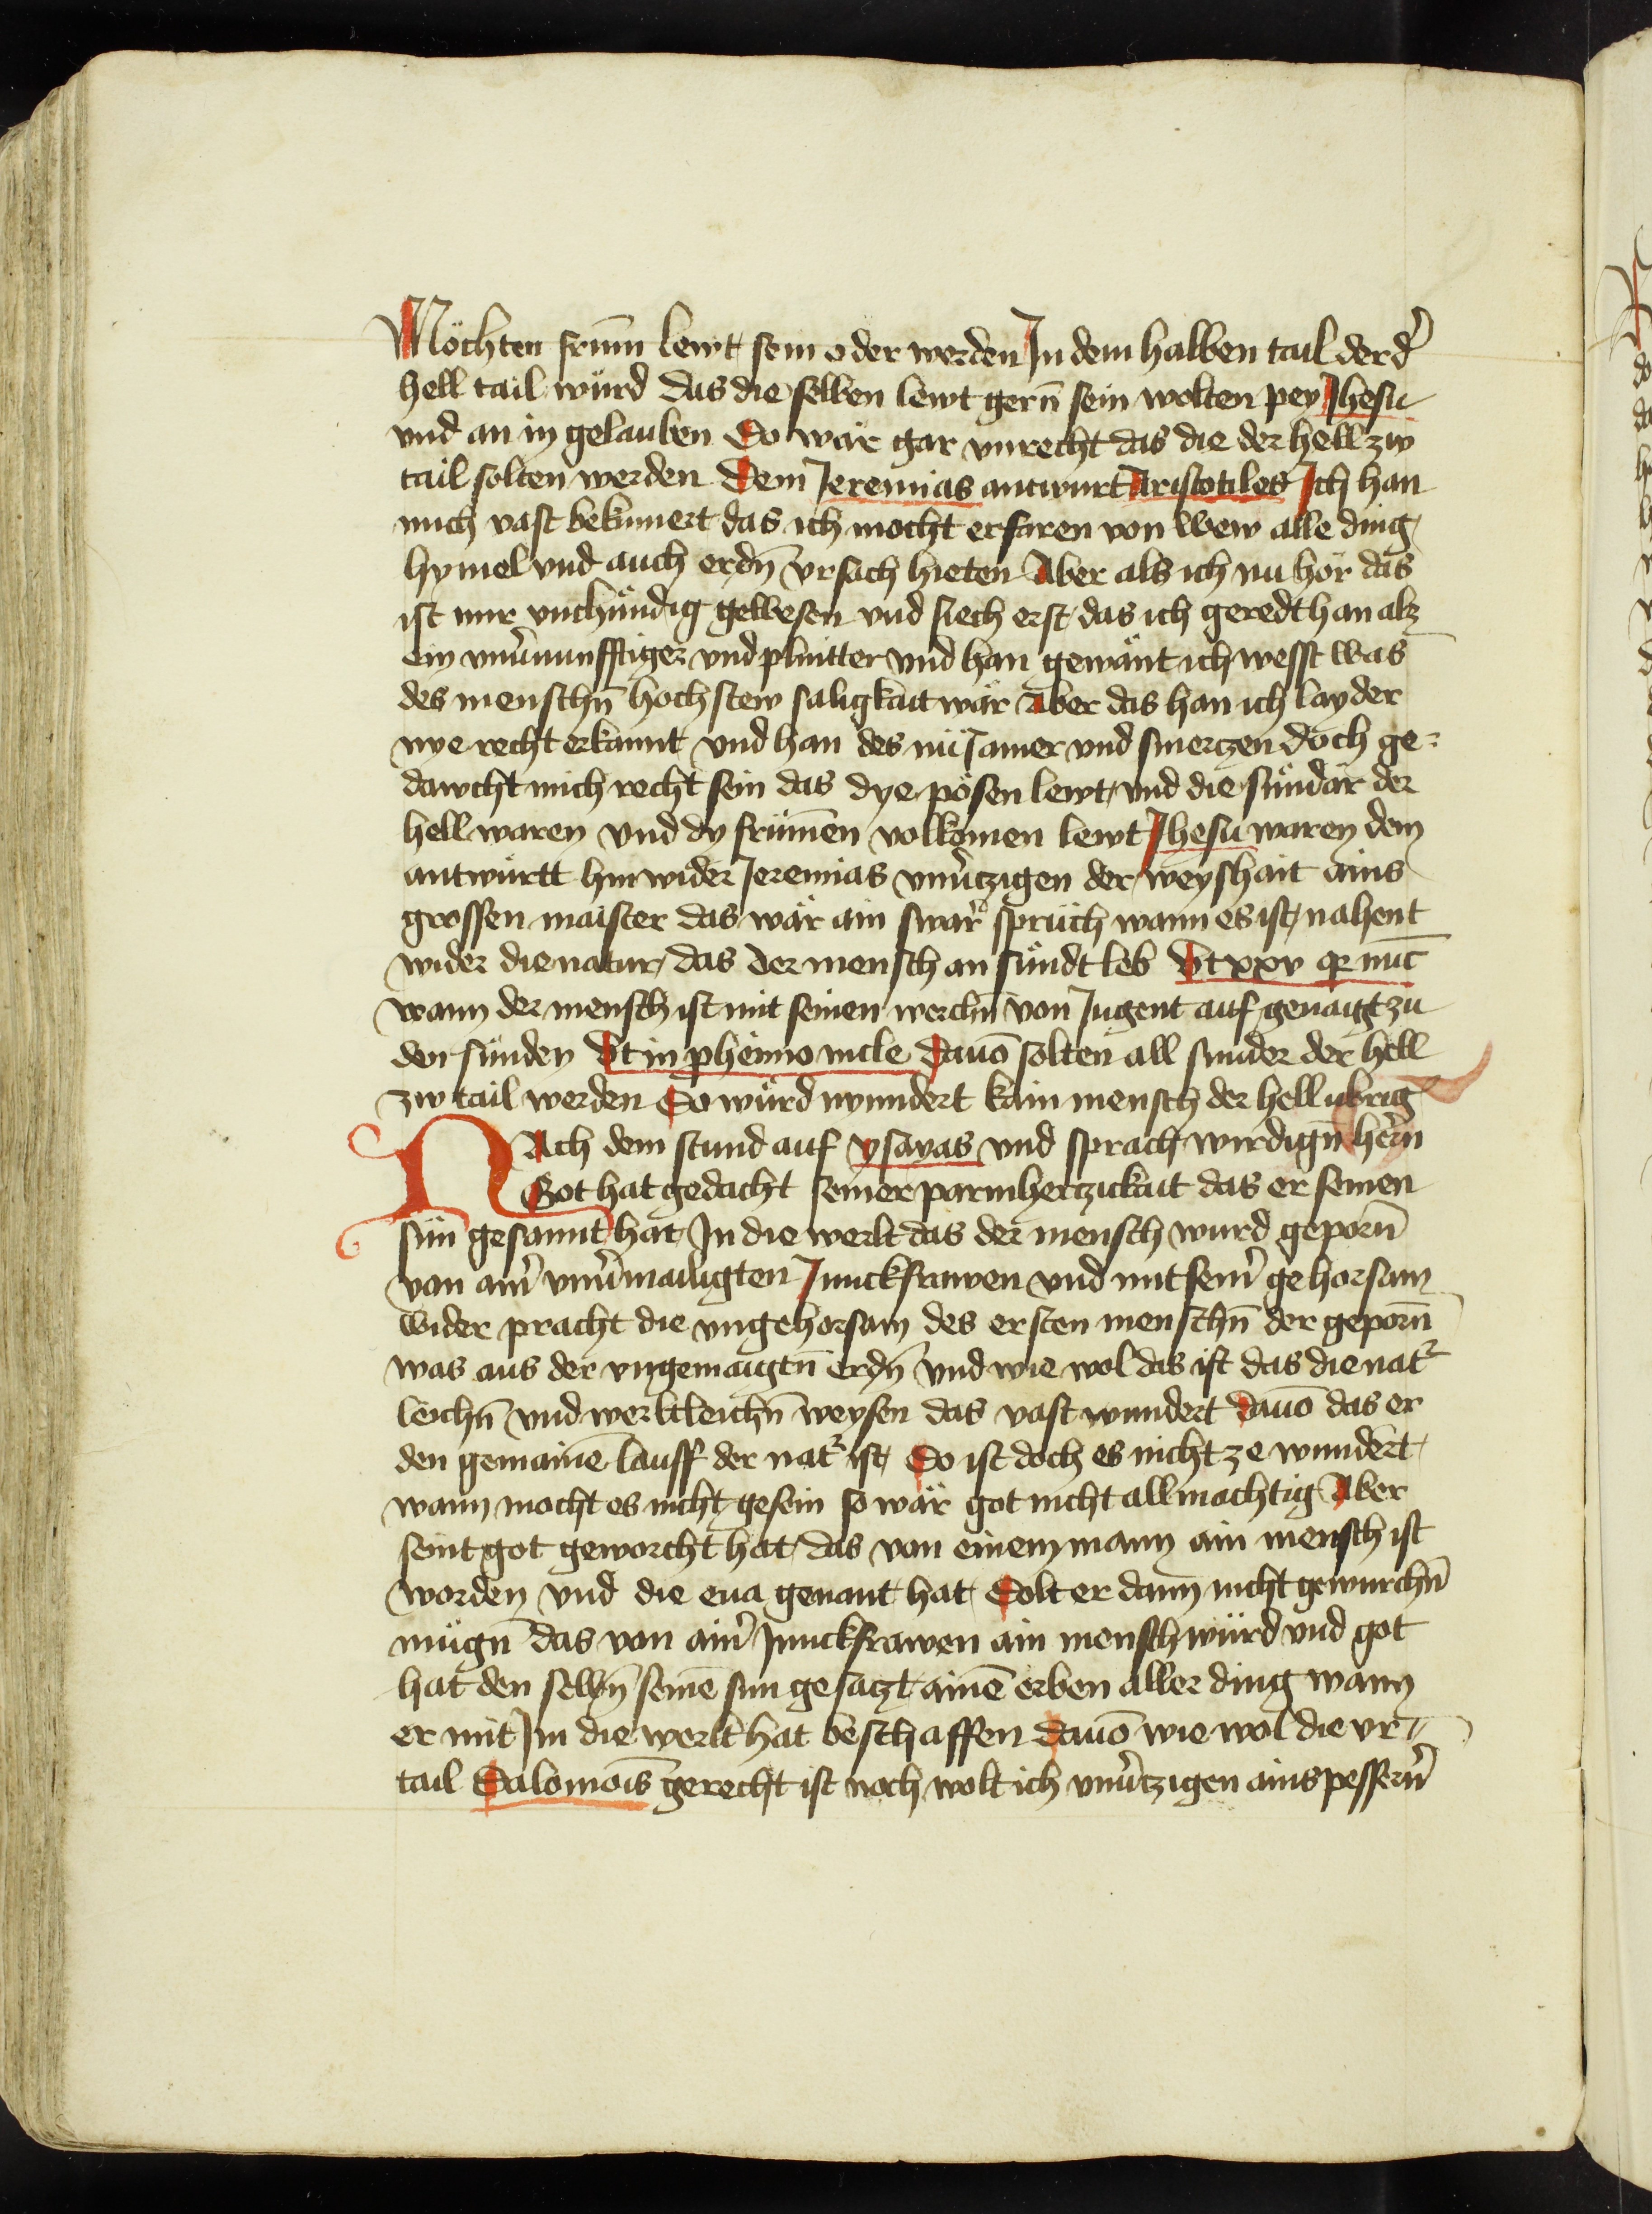 Möchten frūm lewt sein oder werden In dem halben tail der d̾
hell tail würd das die selben lewt gern̄ sein wolten pey Jhesu
vnd an in gelauben So wär gar vnrecht das die der hell zw
tail solten werden Dem Jeremias antwurt Aristotiles Ich han
mich vast bekūmert das ich mocht erfaren von wew alle ding
hymel vnd auch erdn̄ vrsach hieten Aber als ich nu hör das
ist mir vnchündig gewesen vnd siech erst das ich geredt han alz
ein vnu̾nunfftiger vnd plintter vnd han gewänt ich wesst was
des menschn̄ hochstew saligkait wär Aber das han ich layder
nye recht erkannt vnd han des nu Jamer vnd smerczen doch ge=
dawcht mich recht sein das dye pösen lewt vnd die sündär der
hell waren vnd dy frümen volkömen lewt Jhesu waren dem
antwürtt hin wider Jeremias vnu̾tzigen der weyshait ains
grossen maister das wär ain swär̾ sprüch wann es ist nahent
wider die natur das der mensch an sündt leb Vt xxv q̄ nūc
wann der mensch ist mit seinen werchn̄ von Jugent auf genaigt zu
den sünden Vt in phēmo mcle Dauō solten all sunder der hell
zw tail werden So würd nyndert kain mensch der hell übrig
NAch dem stund auf ysayas vnd sprach wirdign̄ her̾n
Got hat gedacht seiner parmherczickait das er seinen
sün gesannt hat In die werlt das der mensch wurd geporn̄
von aim̾ vnu̾mailigten Junckfrawen vnd mit seim̾ gehorsam
wider pracht die vngehorsam des ersten menschn̄ der geporn̄
was aus der vngemaigtn̄ erdn̄ vnd wie wol das ist das die nat̾
leichn̄ vnd werltleichn̄ weysen das vast wundert dauō das er
den gemainē lauff der nat̾ ist So ist doch es nicht ze wundert
wann mocht es nicht gesein so wär got nicht allmachtig Aber
seint got geworcht hat das von einem mann ain mensch ist
worden vnd die eua genant hat Solt er dann nicht gewurchn̄
mügn̄ das von aim̾ Junckfrawen ain mensch würd vnd got
hat den selbn̄ seinē sun gesaczt ainē erben aller ding wann
er mit Im die werlt hat beschaffen dauō wie wol die vr=
tail Salomōis gerecht ist noch wolt ich vnu̾tzigen ains pessern̾